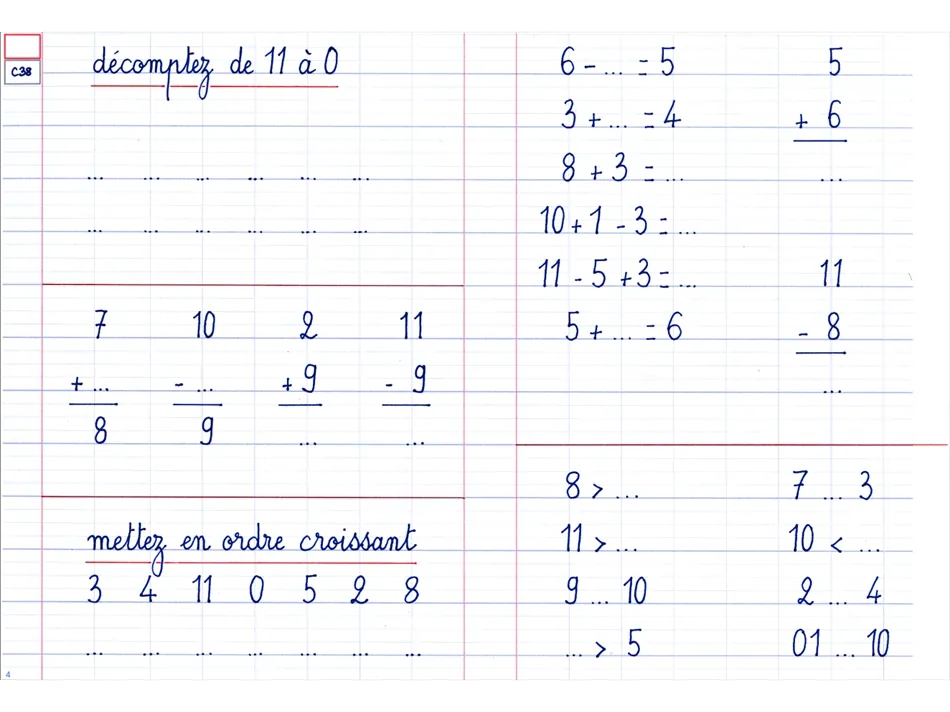 C38
décomptez de 11 à 0
... ... ... ... ... ...
... ... ... ... ... ...
7 10 2 11
+ ... - ... + 9 - 9
8 9 ... ...
mettez en ordre croissant
3 4 11 0 5 2 8
... ... ... ... ... ... ...
6 - ... = 5
3 + ... = 4
8 + 3 = ...
10 + 1 - 3 = ...
11 - 5 + 3 = ...
5 + ... = 6
5
+ 6
...
11
- 8
...
8 > ... 7 ... 3
11 > ... 10 < ...
9 ... 10 2 ... 4
... > 5 01 ... 10
4